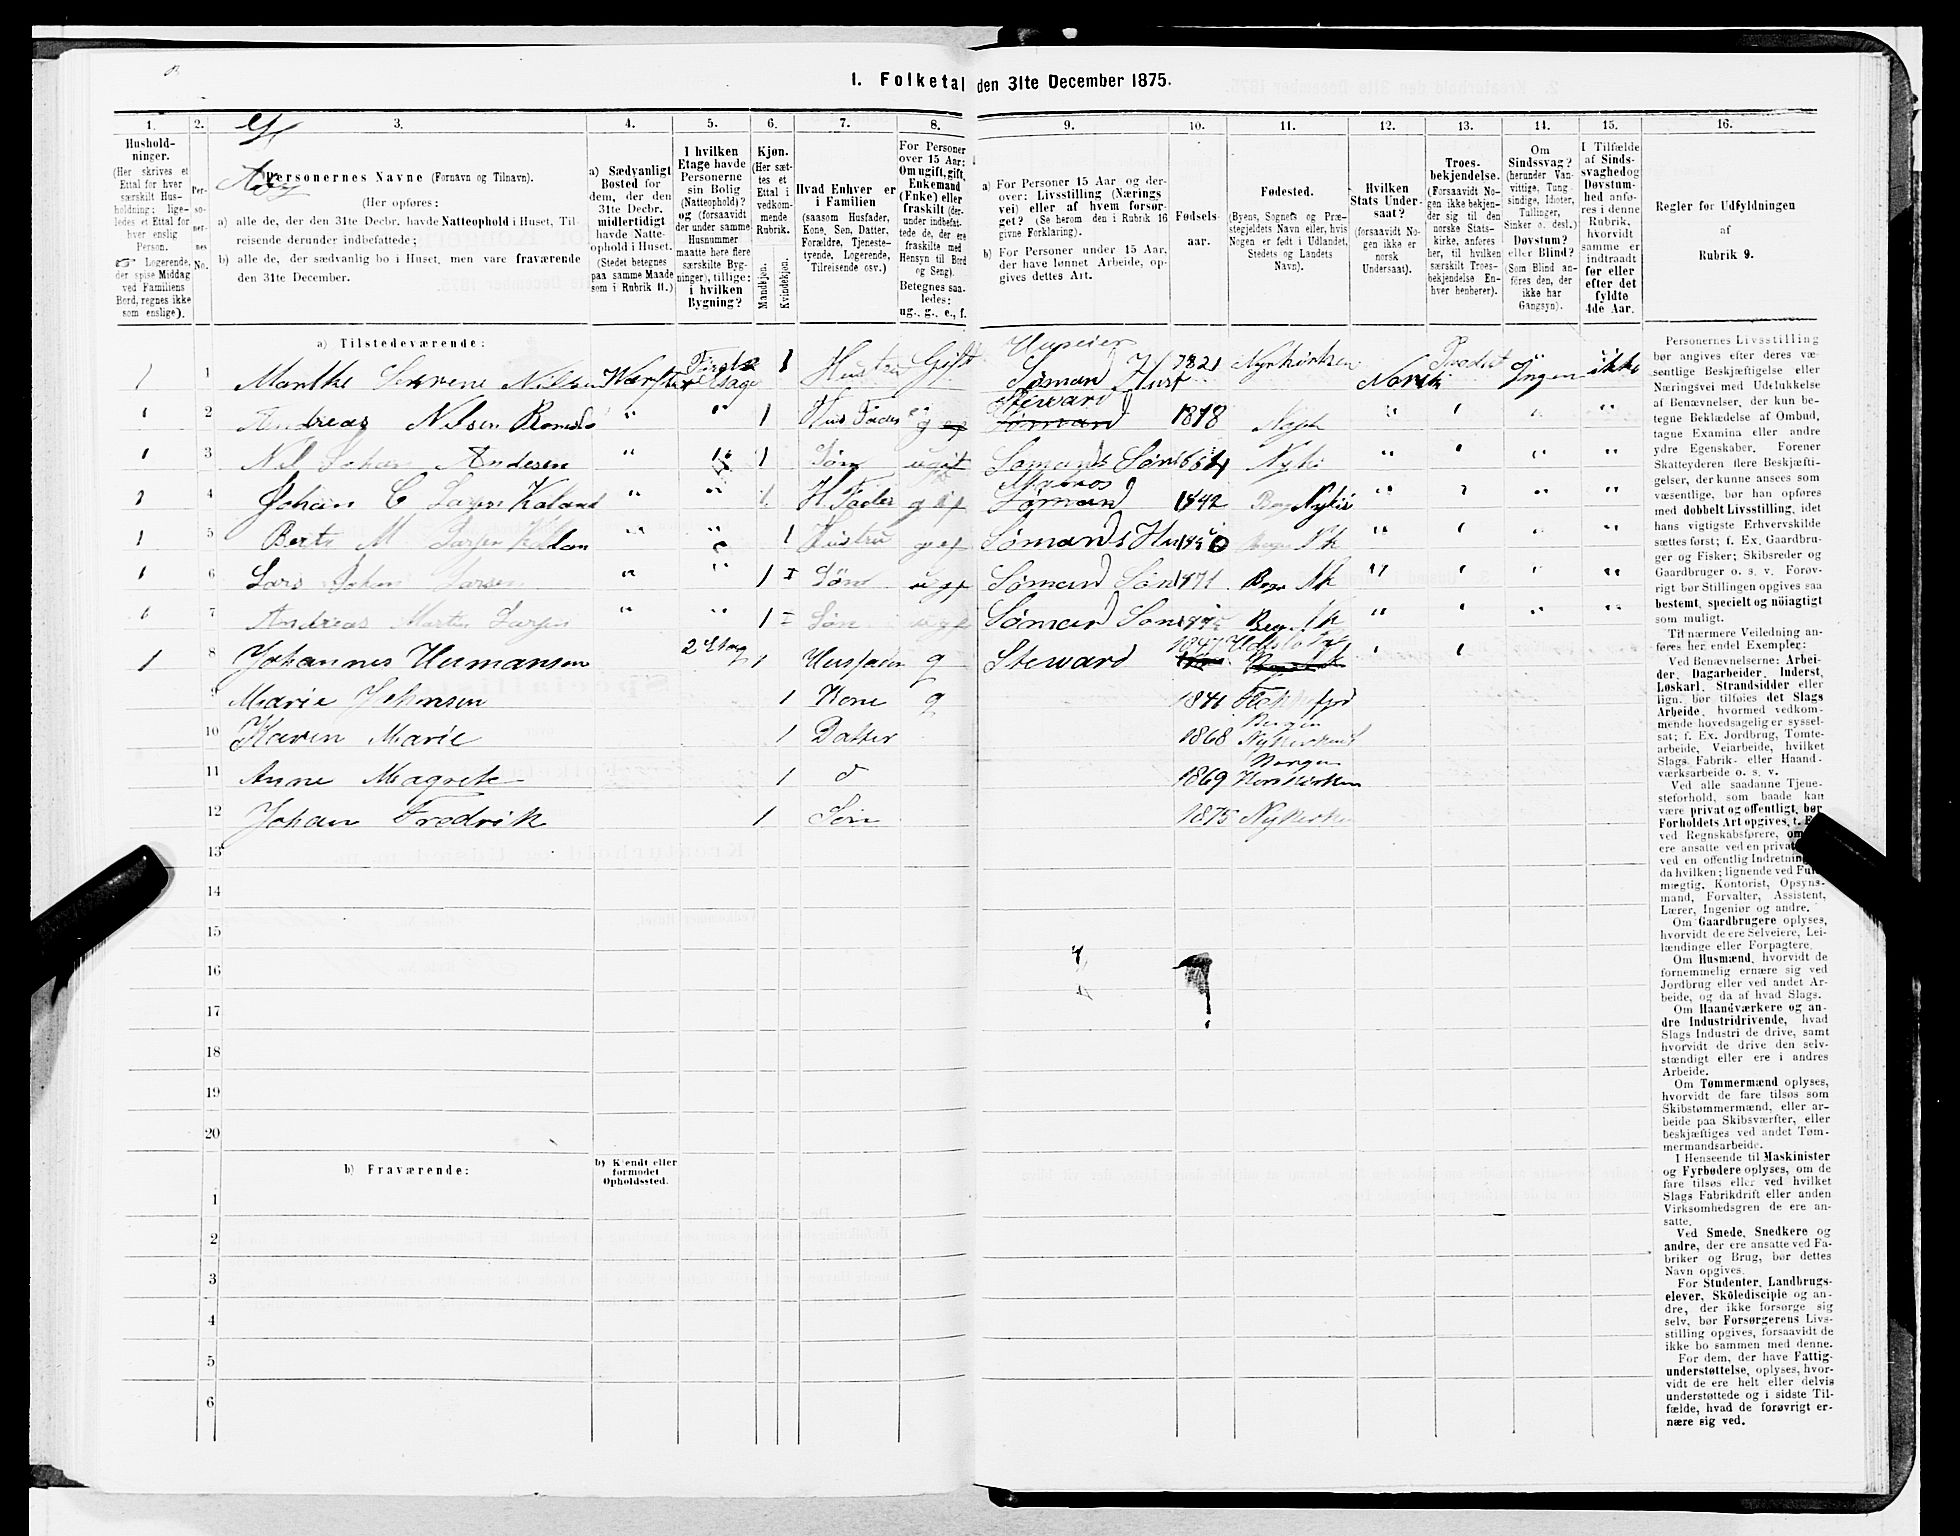 1. Folketal den 31te December 1875.
1. 2. 3. 4. 5. 6. 7. 8. 9. 10. 11. 12. 13. 14. 15. 16.
Hushold-
ninger.
(Her skrives et
Ettal for hver
særskilt Hus-
holdning; lige-
ledes et Ettal for
hver enslig
Person.
☞ Logerende,
der spise Middag
ved Familiens
Bord, regnes ikke
som enslige).
Per-
so-
ner-
nes
No.
Personernes Navne (Fornavn og Tilnavn).
(Her opføres:
a) alle de, der den 31te Decbr. havde Natteophold i Huset, Til-
reisende derunder indbefattede;
b) alle de, der sædvanlig bo i Huset, men vare fraværende
den 31te December.
a) Sædvanligt
Bosted for
dem, der den
31te Decbr.
midlertidigt
havde Natte-
ophold i Huset.
(Stedet betegnes
paa samme Maade
som i Rubrik 11.)
I hvilken
Etage havde
Personerne
sin Bolig
(Natteophold)?
og (forsaavidt
der under samme
Husnummer
maatte høre flere
særskilte Byg-
ninger), tillige:
i hvilken
Bygning?
Kjøn.
(Her sæt-
tes et
Ettal i
vedkom-
mende
Rubrik.
Mandkjøn.
Kvindekjøn.
Hvad Enhver er
i Familien
(saasom Husfader,
Kone, Søn, Datter,
Forældre, Tjeneste-
tyende, Logerende,
Tilreisende osv.)
For Personer
over 15 Aar:
Om ugift, gift,
Enkemand
(Enke) eller
fraskilt (der-
under indbefat-
tede de, der ere
fraskilte med
Hensyn til Bord
og Seng).
Betegnes saa-
ledes:
ug., g., e., f.
a) For Personer 15 Aar og der-
over: Livsstilling (Nærings
vei) eller af hvem forsør-
get? (Se herom den i Rubrik 16
givne Forklaring).
b) For Personer under 15 Aar,
der have lønnet Arbeide, op-
gives dettes Art.
Fødsels-
aar.
Fødested.
(Byens, Sognets og Præ-
stegjeldets Navn eller, hvis
Nogen er født i Udlandet,
Stedets og Landets
Navn).
Hvilken
Stats Under-
saat?
(forsaavidt No-
gen ikke er
norsk
Undersaat).
Troes-
bekjendelse.
(Forsaavidt No-
gen ikke bekjen-
der sig til den
norske Stats-
kirke, anføres
her, til hvilken
særskilt Troes-
bekjendelse En-
hver henhører).
Om
Sindssvag?
(herunder Van-
vittige, Tung-
sindige, Idioter,
Tullinger,
Sinker o. desl.)
Døvstum?
eller Blind?
(Som Blind an-
føres den, der
ikke har
Gangsyn).
I Tilfælde
af Sinds-
svaghed og
Døvstum-
hed anfø-
res i denne
Rubrik,
hvorvidt
samme er
indtraadt
før eller
efter det
fyldte
4de Aar.
Regler for Udfyldningen
af
Rubrik 9.
a) Tilstedeværende:
1 1 Marthe Severine Nilsen Første Etage 1 Hustru Gift Huseier Sømand Hust 1821 Nykirken Norsk Ingen ikke
1 2 Andreas Nilsen " " 1 Hus Fader g Steward Sømand 1818 Nyk " " " "
1 3 Johan Andesen " " 1 Søn ugift Sømands Søn Nyki " " " "
4 Johan C Larsen Kaland " " 1 H. Fader gif Matros Sømand 1842 Nykir " " "
1 5 M Larsen " " 1 Hustru gif Sømands Hus Nk " " " "
6 Lars Johan Larsen " " 1 Søn ugif Sømand Søn 1871 Nk " " " "
7 Andreas Martin Larsen " " 1 Søn ugif Sømand Søn Nk " " " "
1 8 Johannes Hermansen 2 Etag 1 Husfader g Steward 1847 " "
9 Marie Johansen 1 Kone g 1841
10 Karen Marie 1 Datter 1868 Bergen Nykirken
11 Anne Magrete 1 d 1869 Bergen Korskirken
12 Johan Fredrik 1 Søn 1875 Nykirken
13
14
15
16
17
18
19
20
b) Fraværende:
b) Kjendt eller
formodet
Opholdssted.
1
2
3
4
5
6
Personernes Livsstilling
bør angives efter deres væ-
sentlige Beskjæftigelse eller
Næringsvei med Udelukkelse
af Benævnelser, der kun be-
tegne Beklædelse af Ombud,
tagne Examina eller andre
ydre Egenskaber. Forener
Skatteyderen flere Beskjæfti-
gelser, der kunne ansees som
væsentlige, bør han opføres
med dobbelt Livsstilling, idet
hans vigtigste Erhvervskilde
sættes først; f. Ex. Gaardbru-
ger og Fisker; Skibsreder og
Gaardbruger o. s. v. Forøv-
rigt bør Stillingen opgives saa
bestemt, specielt og nöiagtigt
som muligt.
Til nærmere Veiledning an-
føres her endel Exempler:
Ved Benævnelserne: Arbei-
der, Dagarbeider, Inderst,
Løskarl, Strandsidder eller
lign. bør tilføies det Slags
Arbeide, hvormed vedkom-
mende hovedsagelig er syssel-
sat; f. Ex. Jordbrug, Tomte-
arbeide, Veiarbeide, hvilket
Slags Fabrik- eller Haand-
værksarbeide o. s. v.
Ved alle saadanne Tjene-
steforhold, som baade kan
være privat og offentligt, bør
Forholdets Art opgives, t. E
ved Regnskabsførere, om
ere ansatte ved en privat
ved en offentlig Indretning
da hvilken; lignende ved Fuld-
mægtig, Kontorist, Opsyns-
mand, Forvalter, Assistent,
Lærer, Ingeniør og andre.
Om Gaardbrugere oplyses,
hvorvidt de ere Selveiere, Lei-
lændinge eller Forpagtere.
Om Husmænd, hvorvidt de
fornemmelig ernære sig ved
Jordbrug eller ved andet Ar-
beide, og da af hvad Slags.
Om Haandværkere og an-
dre Industridrivende, hvad
Slags Industri de drive, samt
hvorvidt de drive den selv-
stændigt eller ere i andres
Arbeide.
Om Tømmermænd oplyses,
hvorvidt de fare tilsøs som
Skibstømmermænd, eller ar-
beide paa Skibsværfter, eller
beskjæftiges ved andet Tøm-
mermandsarbeide.
I Henseende til Maskinister
og Fyrbødere oplyses, om de
fare tilsøs eller ved hvilket
Slags Fabrikdrift eller anden
Virksomhedsgren de ere an-
satte.
Ved Smede, Snedkere og
andre, der ere ansatte ved Fa-
briker og Brug, bør dettes
Navn opgives.
For Studenter, Landbrugs-
elever, Skoledisciple og an-
dre, der ikke forsørge sig
selv, bør Forsørgerens Livs-
stilling opgives, forsaavidt de
ikke bo sammen med denne.
For dem, der have Fattig-
understøttelse, oplyses, hvor-
vidt de ere helt eller delvis
understøttede og i sidste Til-
fælde, hvad de forøvrigt er-
nære sig ved.